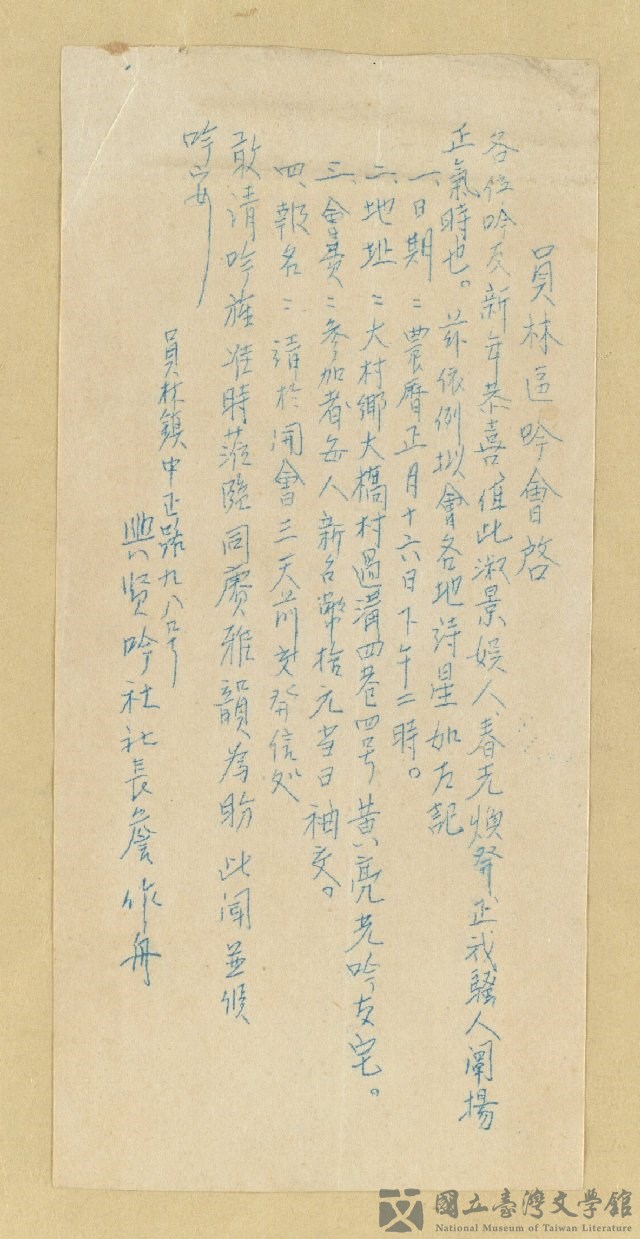 員林區吟會啓
各位吟友新年恭喜值此淑景娛人春光煥發正我騷人闡揚
正氣時也。茲依例拟會各地詩星如左記
一、日期：農曆正月十六日下午二時。
二、地址：大村鄉大橋村過溝四巷四号黄亮光吟友宅。
三、會費：參加者每人新台幣拾元当日袖交。
四、報名：請於開會三天前交發信处
敢請吟旌准時蒞臨同賡雅韻為盼 此聞並候
吟安
員林鎮中正路九八号
興賢吟社社長詹作舟
國立臺灣文學館
National Museum of Taiwan Literature